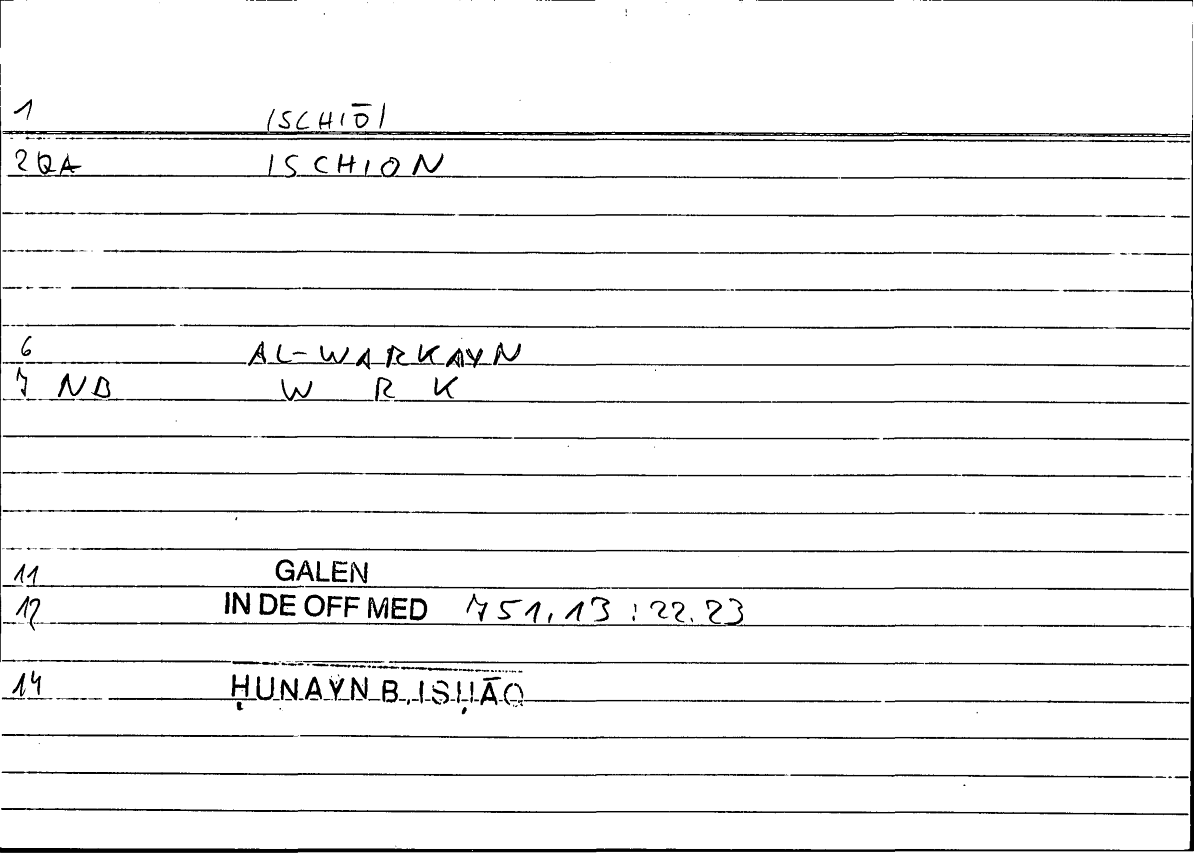 1 ISCHIŌI
2QA ISCHION
6 AL-WARKAYN
7 NB W R K
11 GALEN
12 IN DE OFF MED 751,13 : 22.23
14 ḤUNAYN B. ISḤĀQ